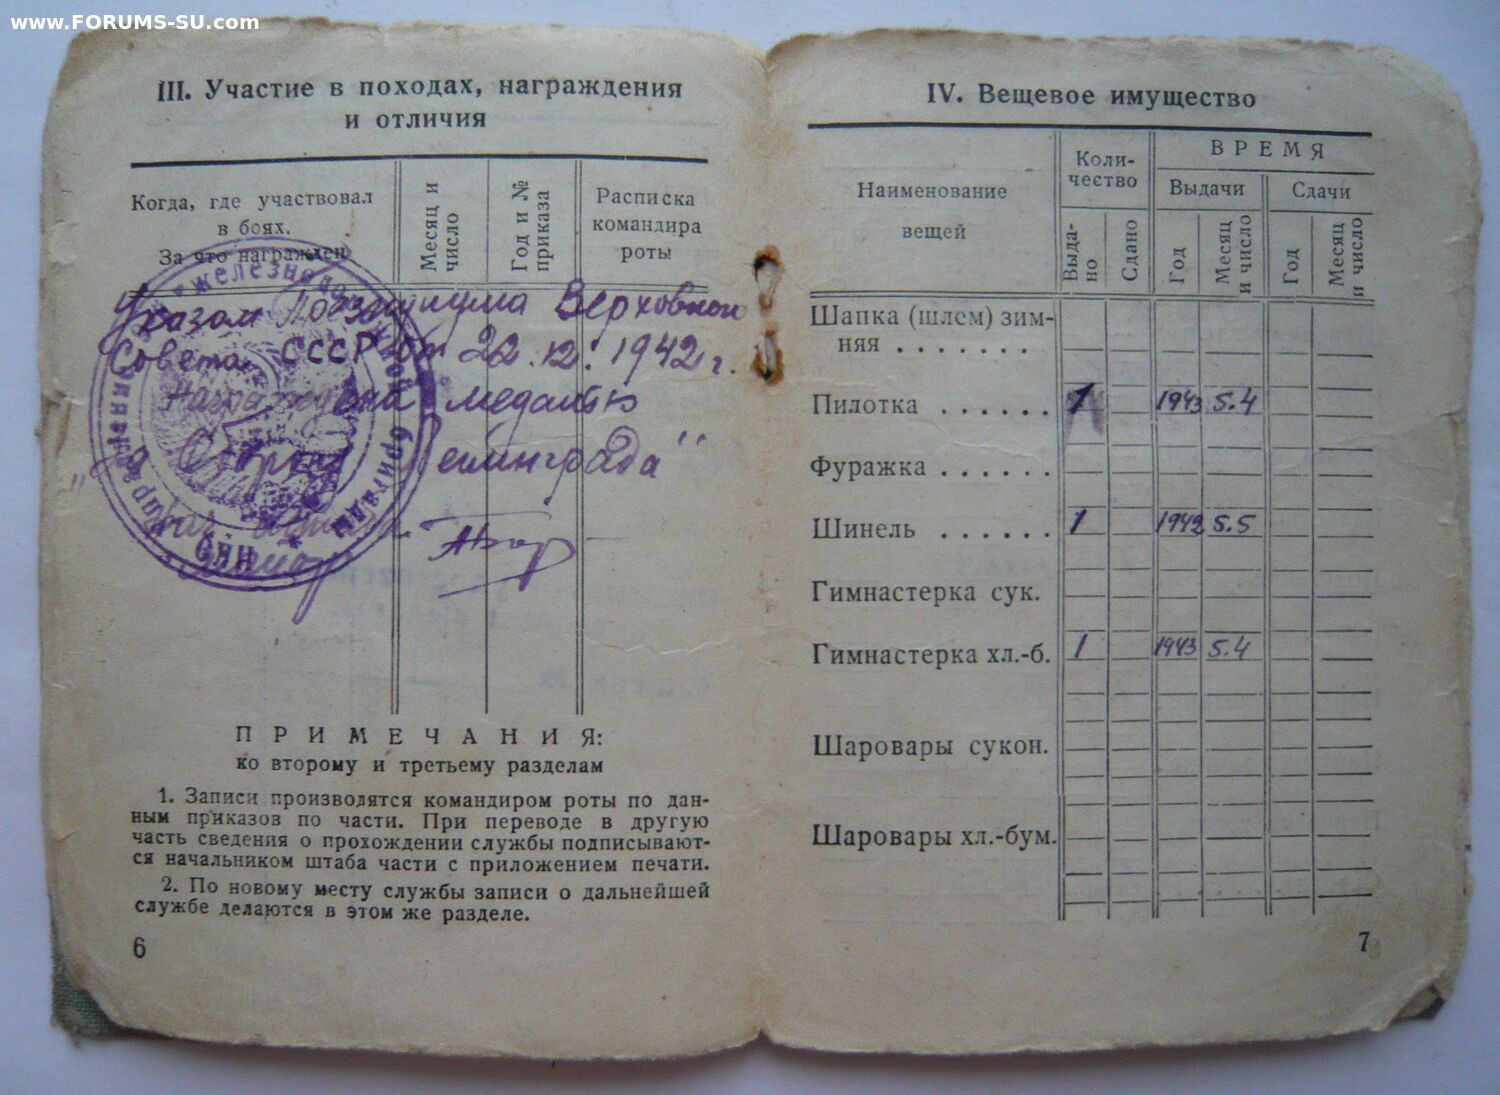 www.FORUMS-SU.com
III. Участие в походах, награждения
и отличия
Когда, где участвовал
в боях.
За что награжден
Месяц и
число
Год и №
приказа
Расписка
командира
роты
Указом Президиума Верховного
Совета СССР от 22.12.1942 г.
Награждена медалью
"За Оборону Ленинграда"
железнодо
бригады
НКО
П Р И М Е Ч А Н И Я:
ко второму и третьему разделам
1. Записи производятся командиром роты по дан-
ным приказов по части. При переводе в другую
часть сведения о прохождении службы подписывают-
ся начальником штаба части с приложением печати.
2. По новому месту службы записи о дальнейшей
службе делаются в этом же разделе.
6
IV. Вещевое имущество
Наименование
вещей
Коли-
чество
В Р Е М Я
Выдачи
Сдачи
Выда-
но
Сдано
Год
Месяц
и число
Год
Месяц
и число
Шапка (шлем) зим-
няя . . . . . . .
Пилотка . . . . . . 1 1943 5.4
Фуражка . . . . . .
Шинель . . . . . . 1 1942 5.5
Гимнастерка сук.
Гимнастерка хл.-б. 1 1943 5.4
Шаровары сукон.
Шаровары хл.-бум.
7